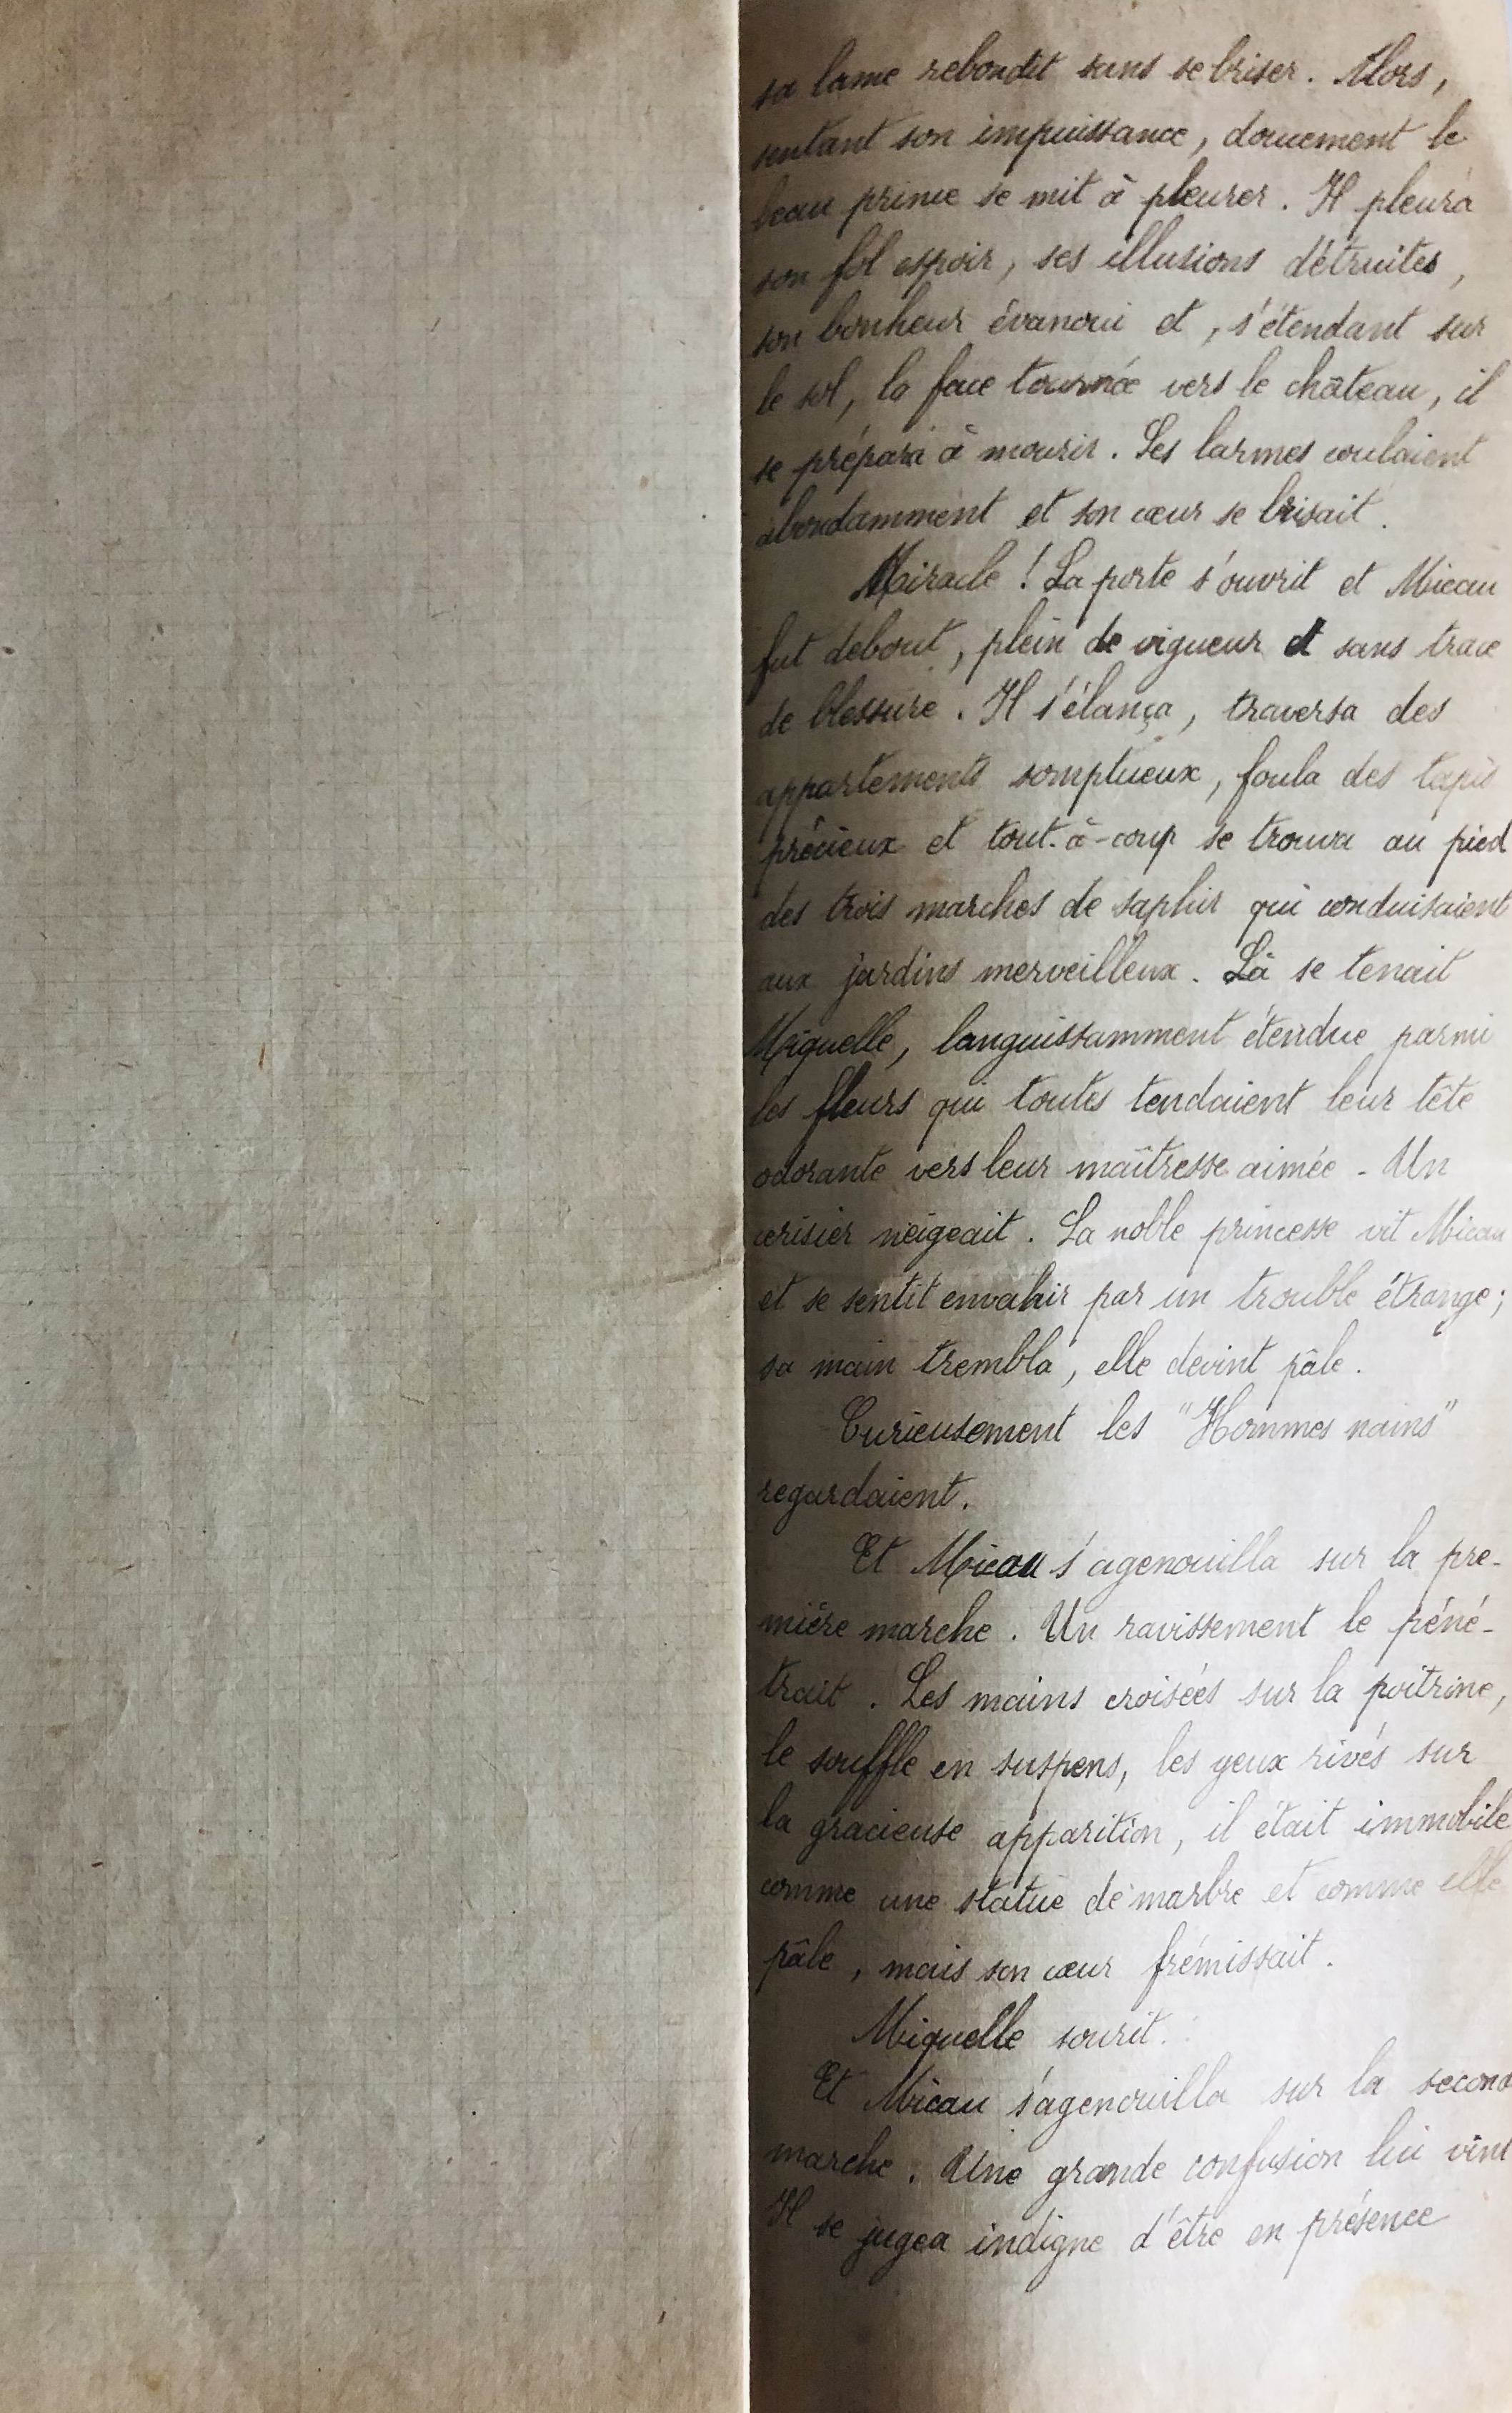 sa lame rebondit sans se briser. Alors,
sentant son impuissance, doucement le
beau prince se mit à pleurer. Il pleura
son fol espoir, ses illusions détruites,
son bonheur évanoui et, s'étendant sur
le sol, la face tournée vers le château, il
se prépara à mourir. Ses larmes coulaient
abondamment et son cœur se brisait.
Miracle ! La porte s'ouvrit et Micau
fut debout, plein de vigueur et sans trace
de blessure. Il s'élança, traversa des
appartements somptueux, foula des tapis
précieux et tout-à-coup se trouva au pied
des trois marches de saphir qui conduisaient
aux jardins merveilleux. Là se tenait
Miquelle, languissamment étendue parmi
les fleurs qui toutes tendaient leur tête
odorante vers leur maîtresse aimée - Un
cerisier neigeait. La noble princesse vit Micau
et se sentit envahir par un trouble étrange ;
sa main trembla, elle devint pâle.
Curieusement les "Hommes nains"
regardaient.
Et Micau s'agenouilla sur la pre-
mière marche. Un ravissement le péné-
trait. Les mains croisées sur la poitrine,
le souffle en suspens, les yeux rivés sur
la gracieuse apparition, il était immobile
comme une statue de marbre et comme elle
pâle, mais son cœur frémissait.
Miquelle sourit.
Et Micau s'agenouilla sur la second
marche. Une grande confusion lui vint
Il se jugea indigne d'être en présence